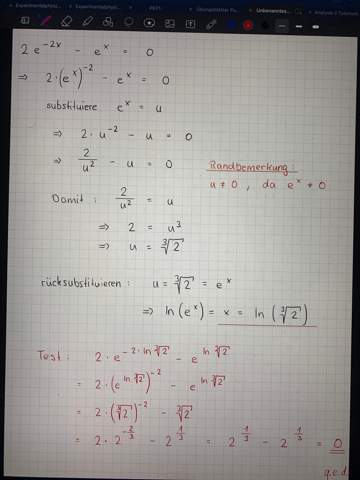 2 e^{-2x} - e^x = 0
⇒ 2·(e^x)^{-2} - e^x = 0
substituiere e^x = u
⇒ 2·u^{-2} - u = 0
⇒ 2/u² - u = 0
Randbemerkung:
u ≠ 0, da e^x ≠ 0
Damit: 2/u² = u
⇒ 2 = u³
⇒ u = ∛2
rücksubstituieren: u = ∛2 = e^x
⇒ ln(e^x) = x = ln(∛2)
Test: 2·e^{-2·ln ∛2} - e^{ln ∛2}
= 2·(e^{ln ∛2})^{-2} - e^{ln ∛2}
= 2·(∛2)^{-2} - ∛2
= 2·2^{-2/3} - 2^{1/3} = 2^{1/3} - 2^{1/3} = 0
q.e.d.